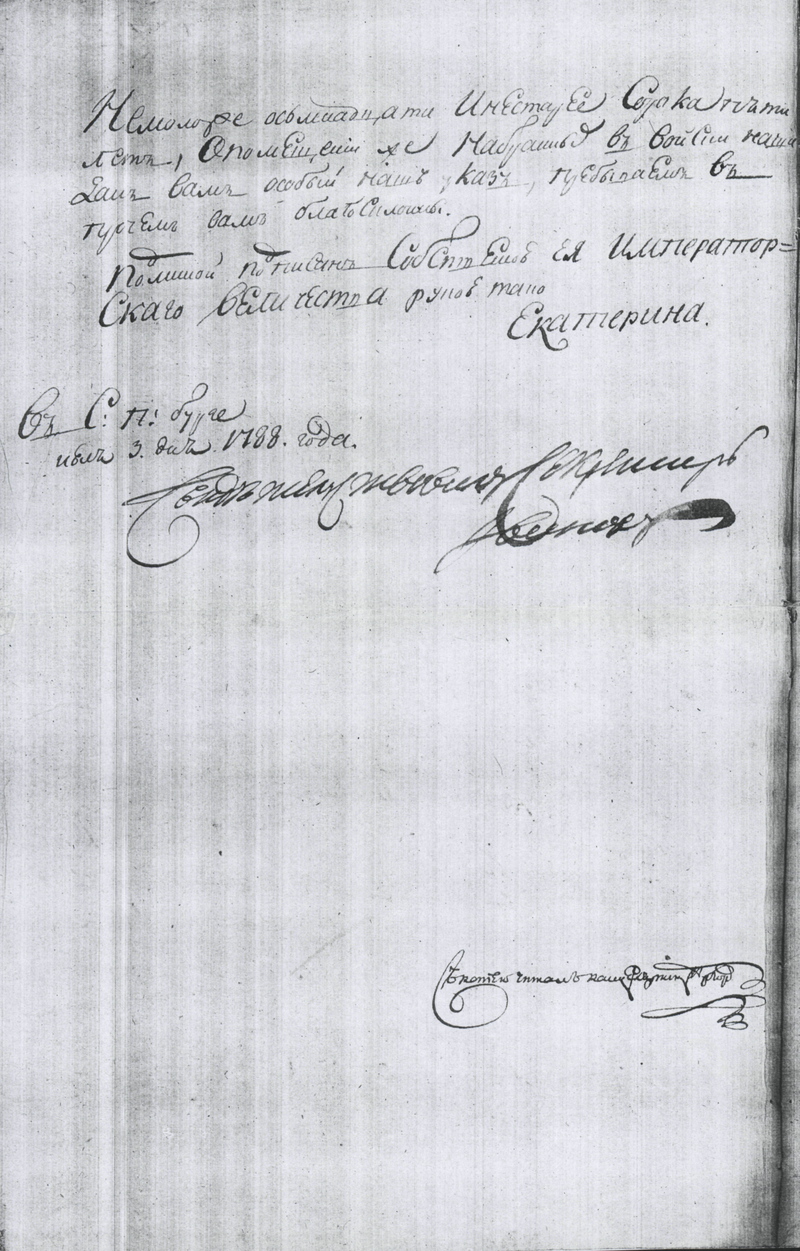 Немоложе осьмнадцати Инестарее Сорока пяти
летъ, Опомещении же Набранныхъ въ войски наши
Данъ вамъ особый нашъ указъ, пребываемъ въ
прочемъ вамъ благосклонны.
Подлинной подписанъ Собственною ея Император=
Скаго величества рукою тако
Екатерина.
въ С: П: бурге
июля 3. дня 1788. года.
Секретарь
Съ копиею читалъ канцеляристъ